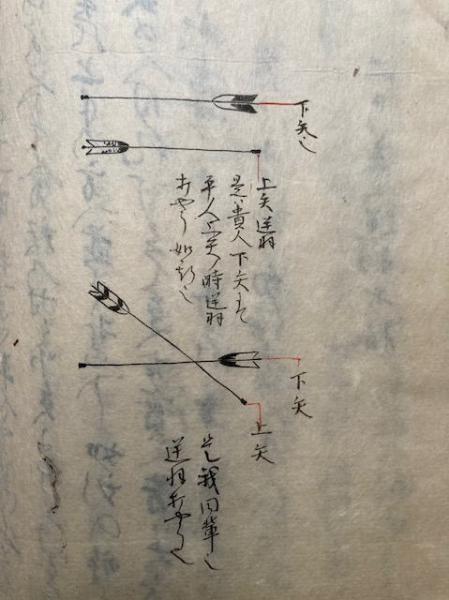 下矢也
上矢逆羽
是ハ貴人下矢にて
平人上矢ノ時逆羽
打やう如新之
下矢
上矢
是ハ我同輩之
逆羽打やう也